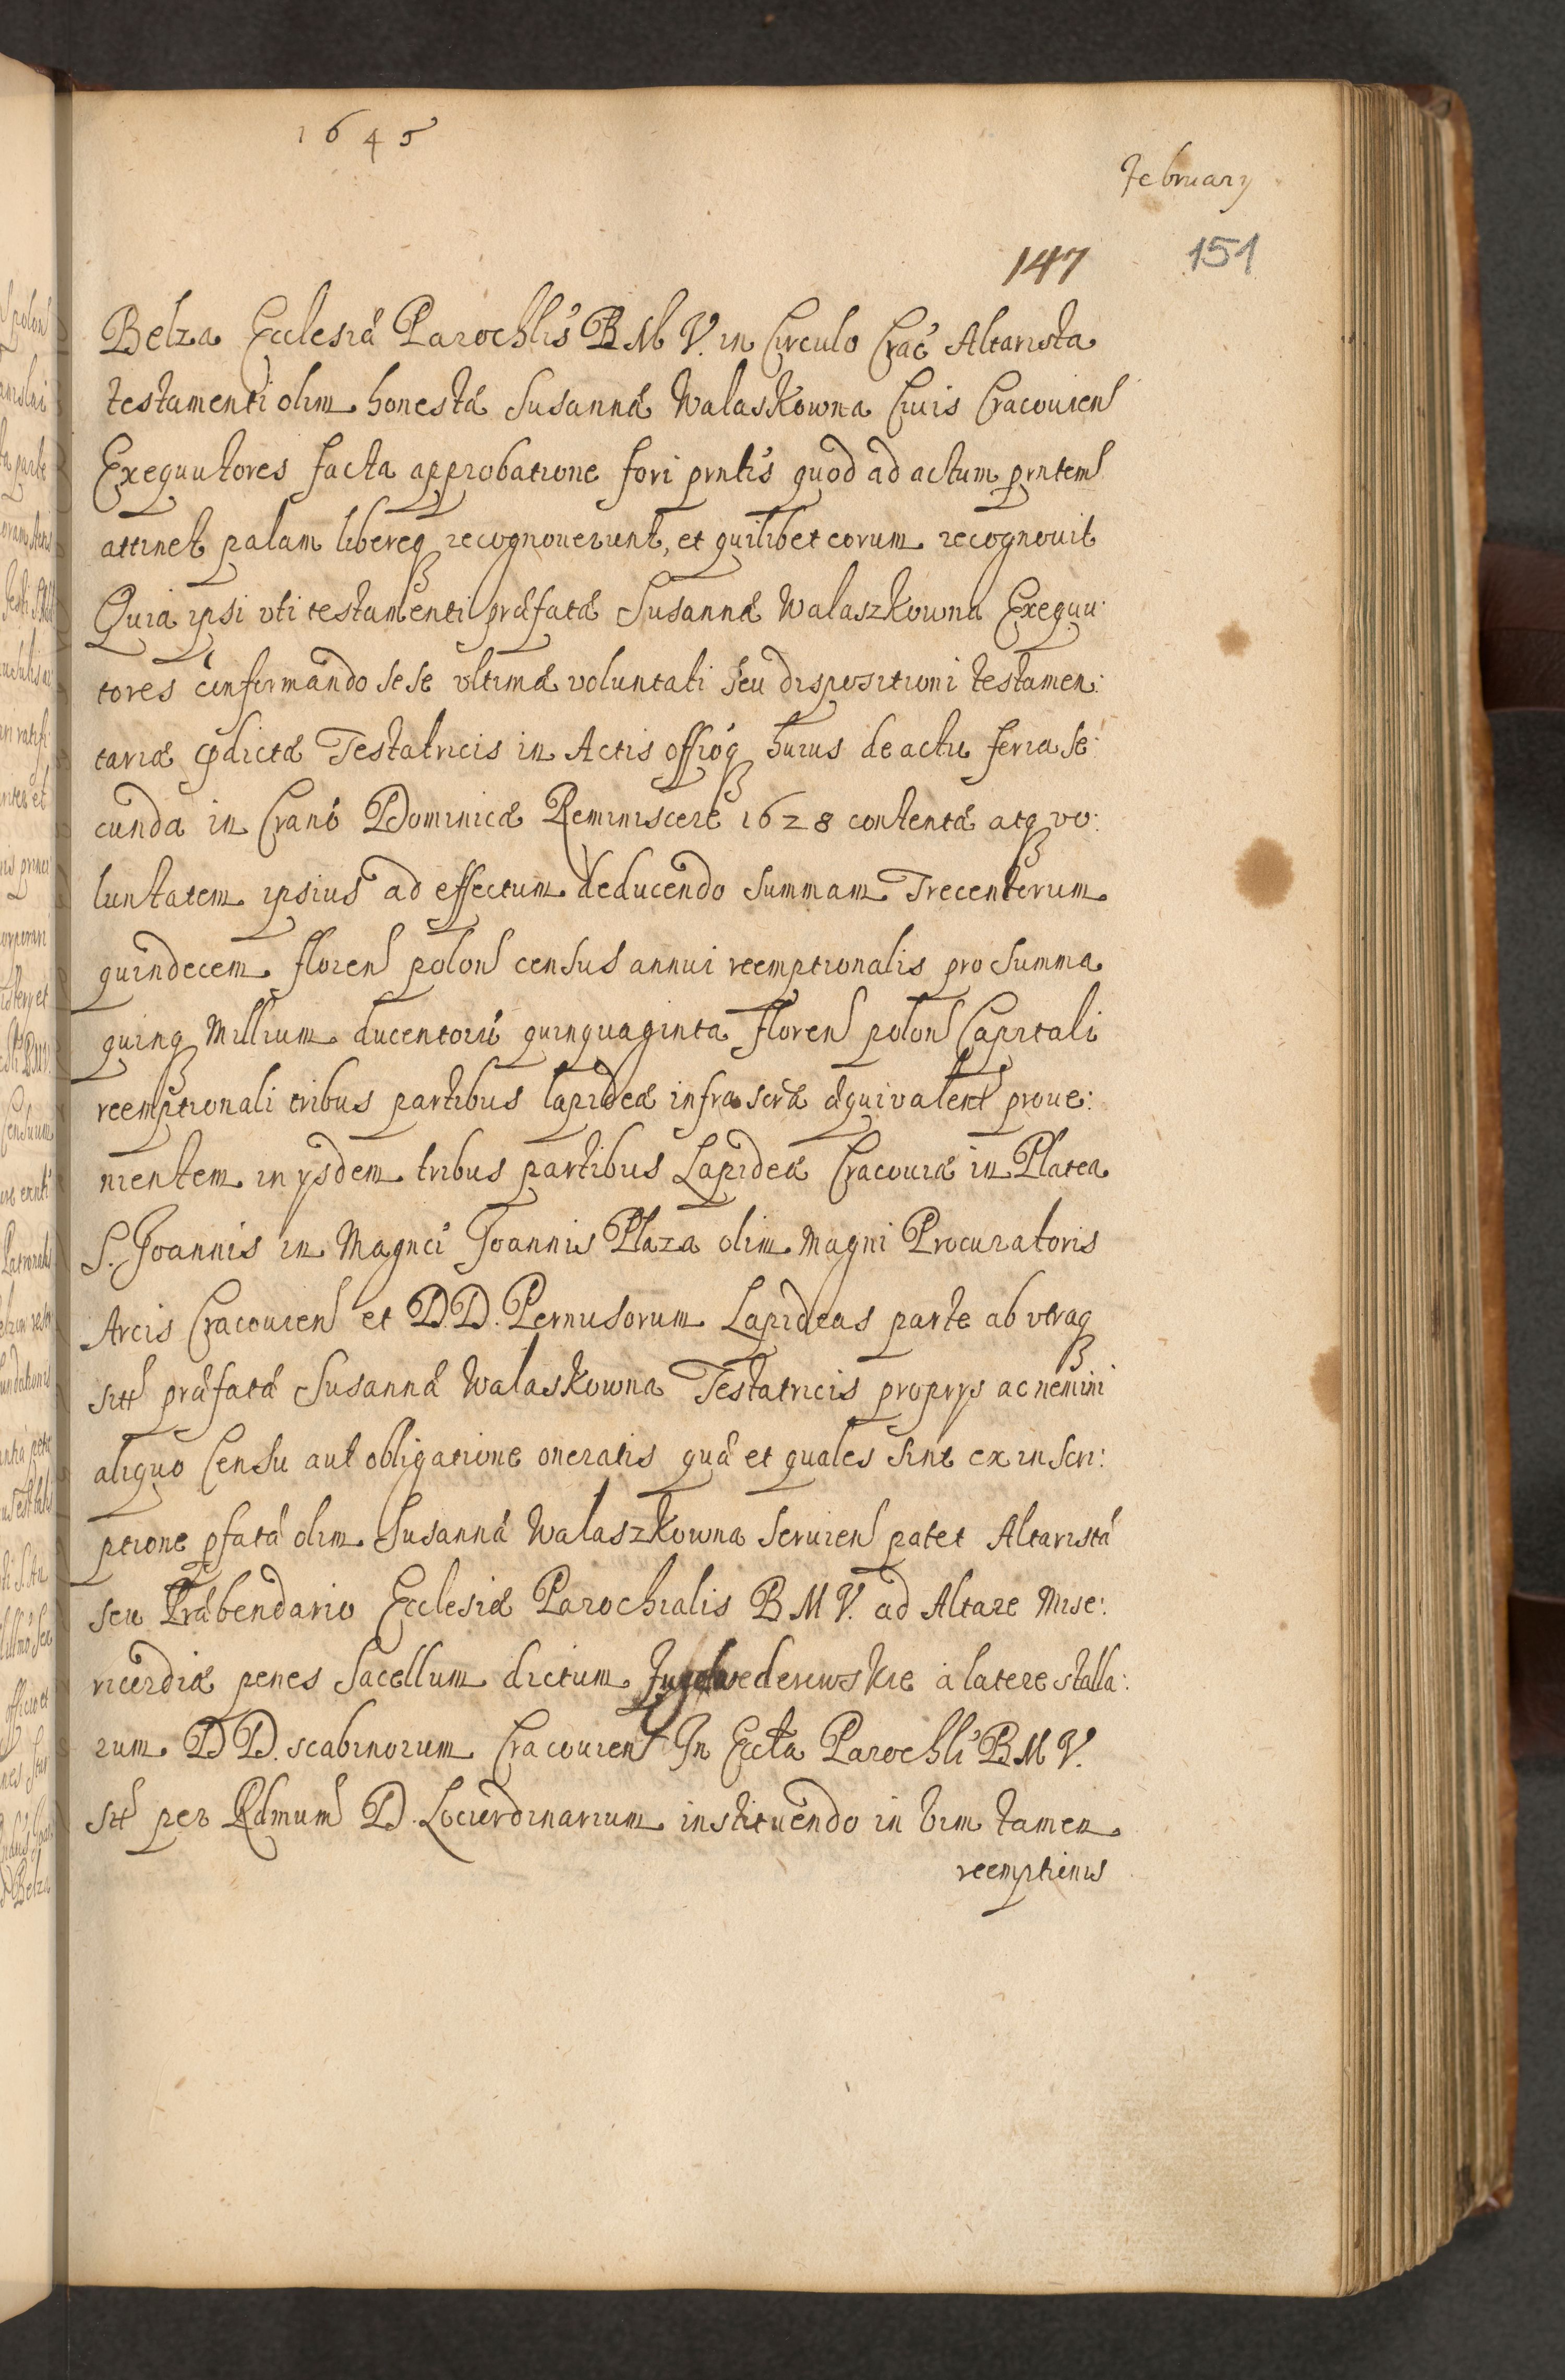 1645
February
147 151
Belza Ecclesiæ Parochlis B M V. in Circulo Crac Altarista
testamenti olim honestæ Susannæ Walaskowna Civis Cracouien
Exequutores facta approbatione fori pntis quod ad actum pntem
attinet palam libereq recognouerunt, et quilibet eorum recognouit
Quia ipsi vti testamenti præfatæ Susannæ Walaszkowna Exequu:
tores confirmando sese vltimæ voluntati seu dispositioni testamen:
tariæ pdictæ Testatricis in Actis offioq huius de actu feria se:
cunda in Crano Dominicæ Reminiscere 1628 contentæ atq vo:
luntatem ipsius ad effectum deducendo summam Trecentorum
quindecem floren polon census annui reemptionalis pro summa
quinq Millium ducentoru quinquaginta floren polon Capitali
reemptionali tribus partibus lapideæ infra scræ æquivalent proue:
nientem in ysdem tribus partibus Lapideæ Cracouiæ in Platea
S. Joannis in Magnci Joannis Plaza olim Magni Procuratoris
Arcis Cracouien et D.D. Pernusorum Lapideas parte ab vtraq
sitt præfatæ Susannæ Walaskowna Testatricis proprys ac nemini
aliquo Censu aut obligatione oneratis quæ et quales sint ex inscri:
ptione pfatæ olim Susannæ Walaszkowna seruien patet Altaristæ
seu Præbendario Ecclesiæ Parochialis B M V. ad Altare Mise:
ricordiæ penes Sacellum dictum a latere stalla:
rum D D. scabinorum Cracouien In Eccta Parochli B M V.
stt per Rdmum D. Lociordinarium instituendo in vim tamen
reemptionis